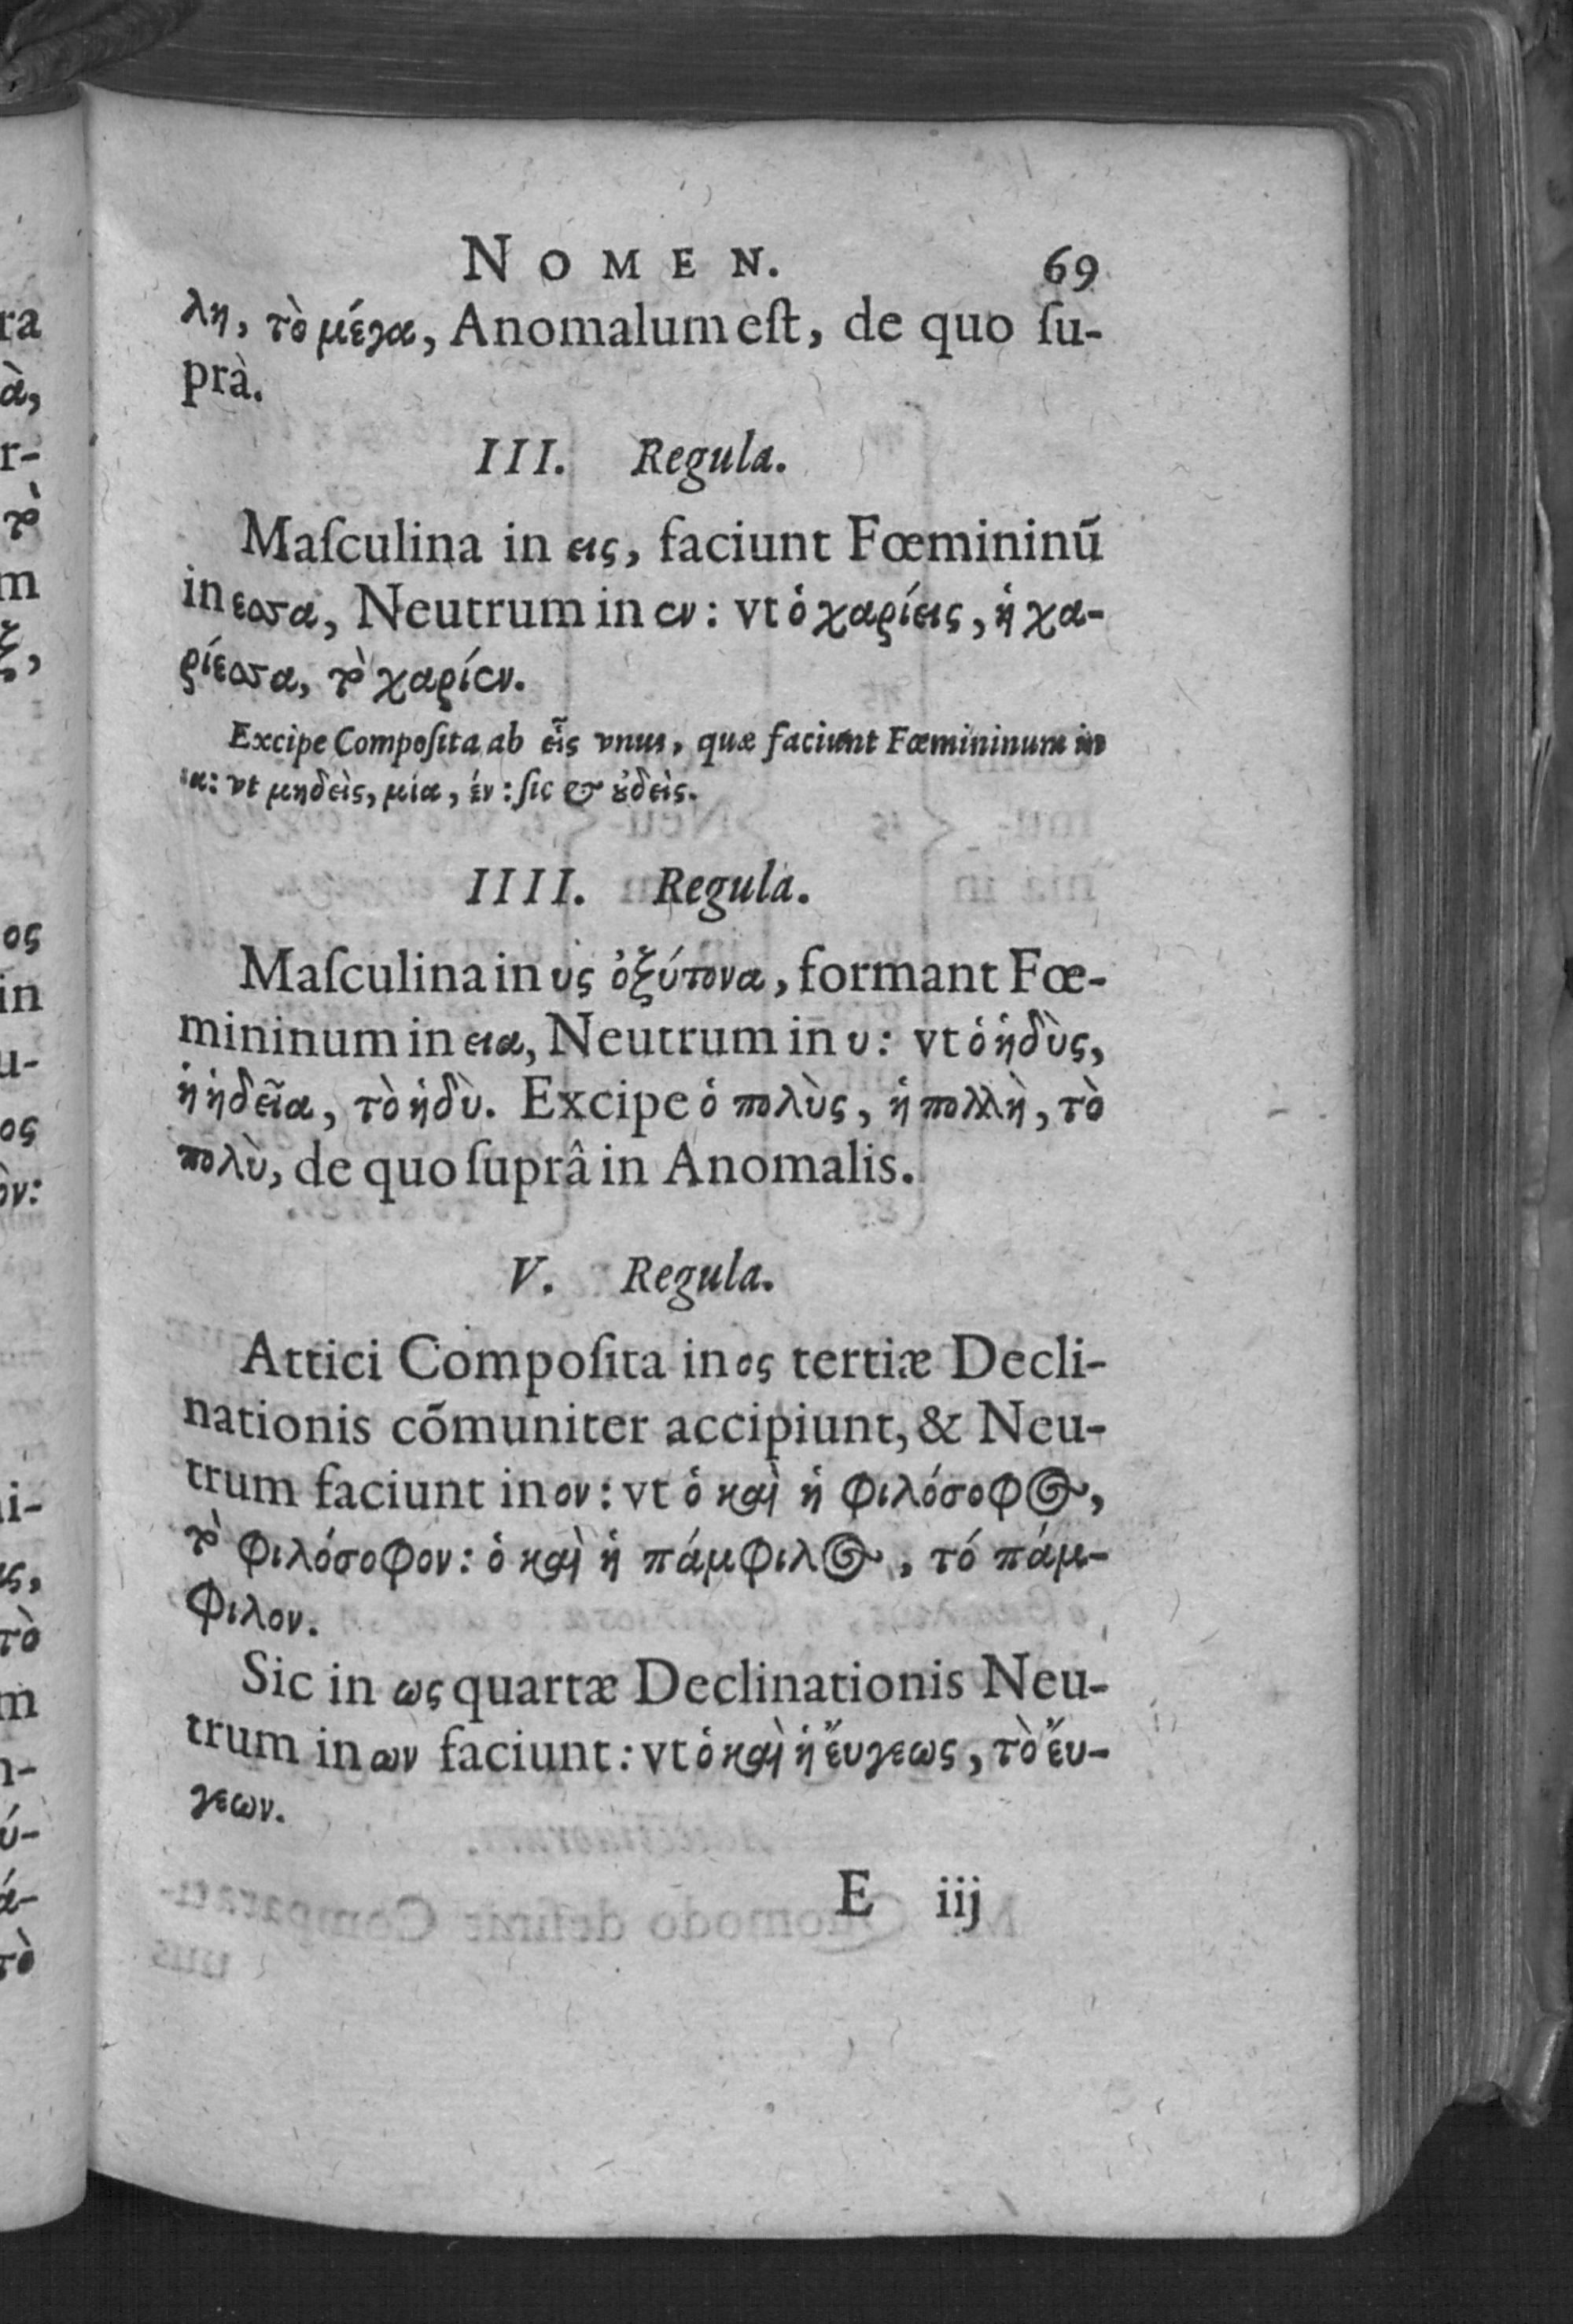 NOMEN. 69
λη, τὸ μέγα, Anomalum eſt, de quo ſu-
prà.
III. Regula.
Maſculina in εις, faciunt Fœmininū
in εσσα, Neutrum in εν: vt ὁ χαρίεις, ἡ χα-
ρίεσσα, τὸ χαρίεν.
Excipe Compoſita ab εἷς vnus, quæ faciunt Fœmininum in
ια: vt μηδεὶς, μία, ἑν: ſic & ȣ̓δεὶς.
IIII. Regula.
Maſculina in υς ὀξύτονα, formant Fœ-
mininum in εια, Neutrum in υ: vt ὁ ἡδὺς,
ἡ ἡδεῖα, τὸ ἡδὺ. Excipe ὁ πολὺς, ἡ πολλὴ, τὸ
πολὺ, de quo ſuprâ in Anomalis.
V. Regula.
Attici Compoſita in ος tertiæ Decli-
nationis cōmuniter accipiunt, & Neu-
trum faciunt in ον: vt ὁ καὶ ἡ φιλόσοφος,
τὸ φιλόσοφον: ὁ καὶ ἡ πάμφιλος, τό πάμ-
φιλον.
Sic in ως quartæ Declinationis Neu-
trum in ων faciunt: vt ὁ καὶ ἡ ἔυγεως, τὸ ἔυ-
γεων.
E iij